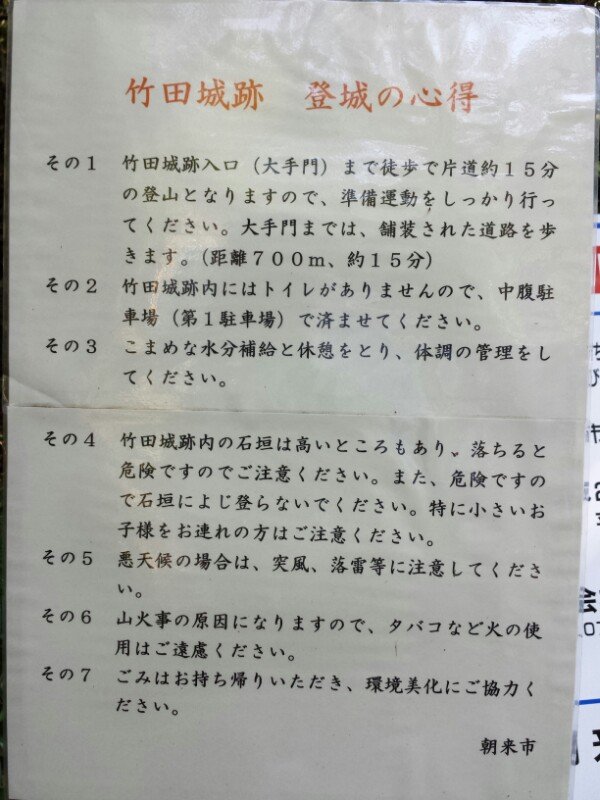 竹田城跡　登城の心得
その１　竹田城跡入口（大手門）まで徒歩で片道約１５分
の登山となりますので、準備運動をしっかり行っ
てください。大手門までは、舗装された道路を歩
きます。（距離７００ｍ、約１５分）
その２　竹田城跡内にはトイレがありませんので、中腹駐
車場（第１駐車場）で済ませてください。
その３　こまめな水分補給と休憩をとり、体調の管理をし
てください。
その４　竹田城跡内の石垣は高いところもあり、落ちると
危険ですのでご注意ください。また、危険ですの
で石垣によじ登らないでください。特に小さいお
子様をお連れの方はご注意ください。
その５　悪天候の場合は、突風、落雷等に注意してくださ
い。
その６　山火事の原因になりますので、タバコなど火の使
用はご遠慮ください。
その７　ごみはお持ち帰りいただき、環境美化にご協力く
ださい。
朝来市